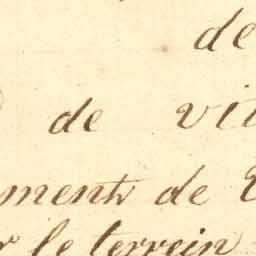 de
de vi
ments de
le terrein